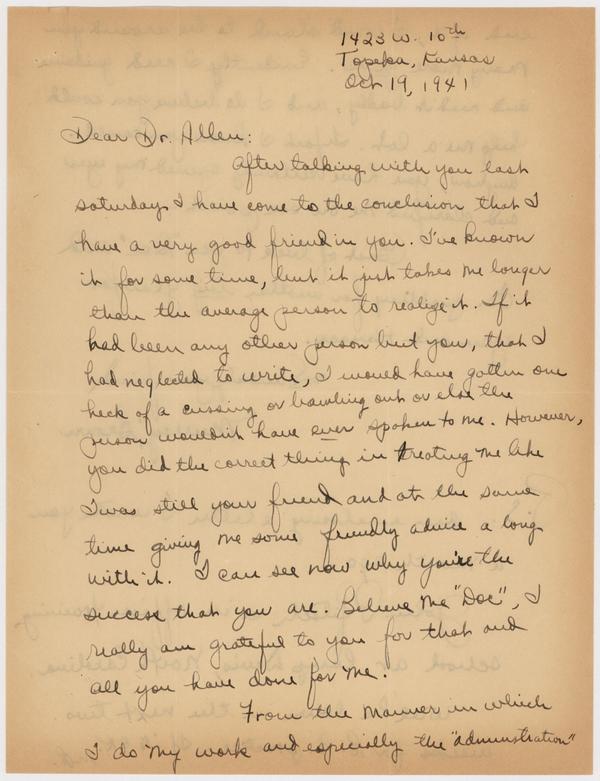 1423 W. 10th
Topeka, Kansas
Oct 19, 1941
Dear Dr. Allen:
After talking with you last
saturday I have come to the conclusion that I
have a very good friend in you. I've known
it for some time, but it just takes me longer
than the average person to realize it. If it
had been any other person but you, that I
had neglected to write, I would have gotten one
heck of a cussing or bawling out or else the
person wouldn't have ever spoken to me. However,
you did the correct thing in treating me like
I was still your friend and at the same
time giving me some friendly advice a long
with it. I can see now why you're the
success that you are. Believe me "Doc", I
really am grateful to you for that and
all you have done for me.
From the manner in which
I do my work and especially the "adminstration"